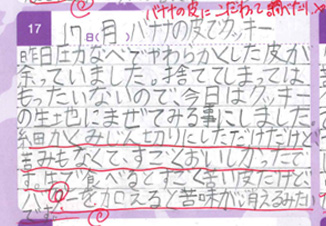 バナナの皮にこだわって調べたり、
17 17日(月) バナナの皮でクッキー
昨日圧力なべでやわらかくした皮が
余っていました。捨ててしまっては
もったいないので、今日はクッキー
の生地にまぜてみる事にしました。
細かくみじん切りにしただけだけど
苦みもなくて、すごくおいしかったで
す。生で食べるとすごくまずい皮だけど、
バターを加えると苦味が消えるみたい
です。